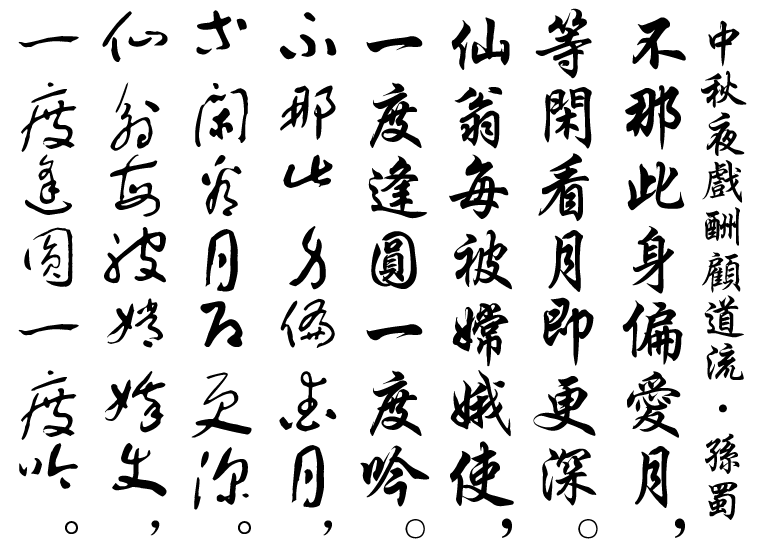 中秋夜戲酬顧道流・孫蜀
不那此身偏愛月，
等閑看月即更深。
仙翁每被嫦娥使，
一度逢圓一度吟。
不那此身偏愛月，
等閑看月即更深。
仙翁每被嫦娥使，
一度逢圓一度吟。